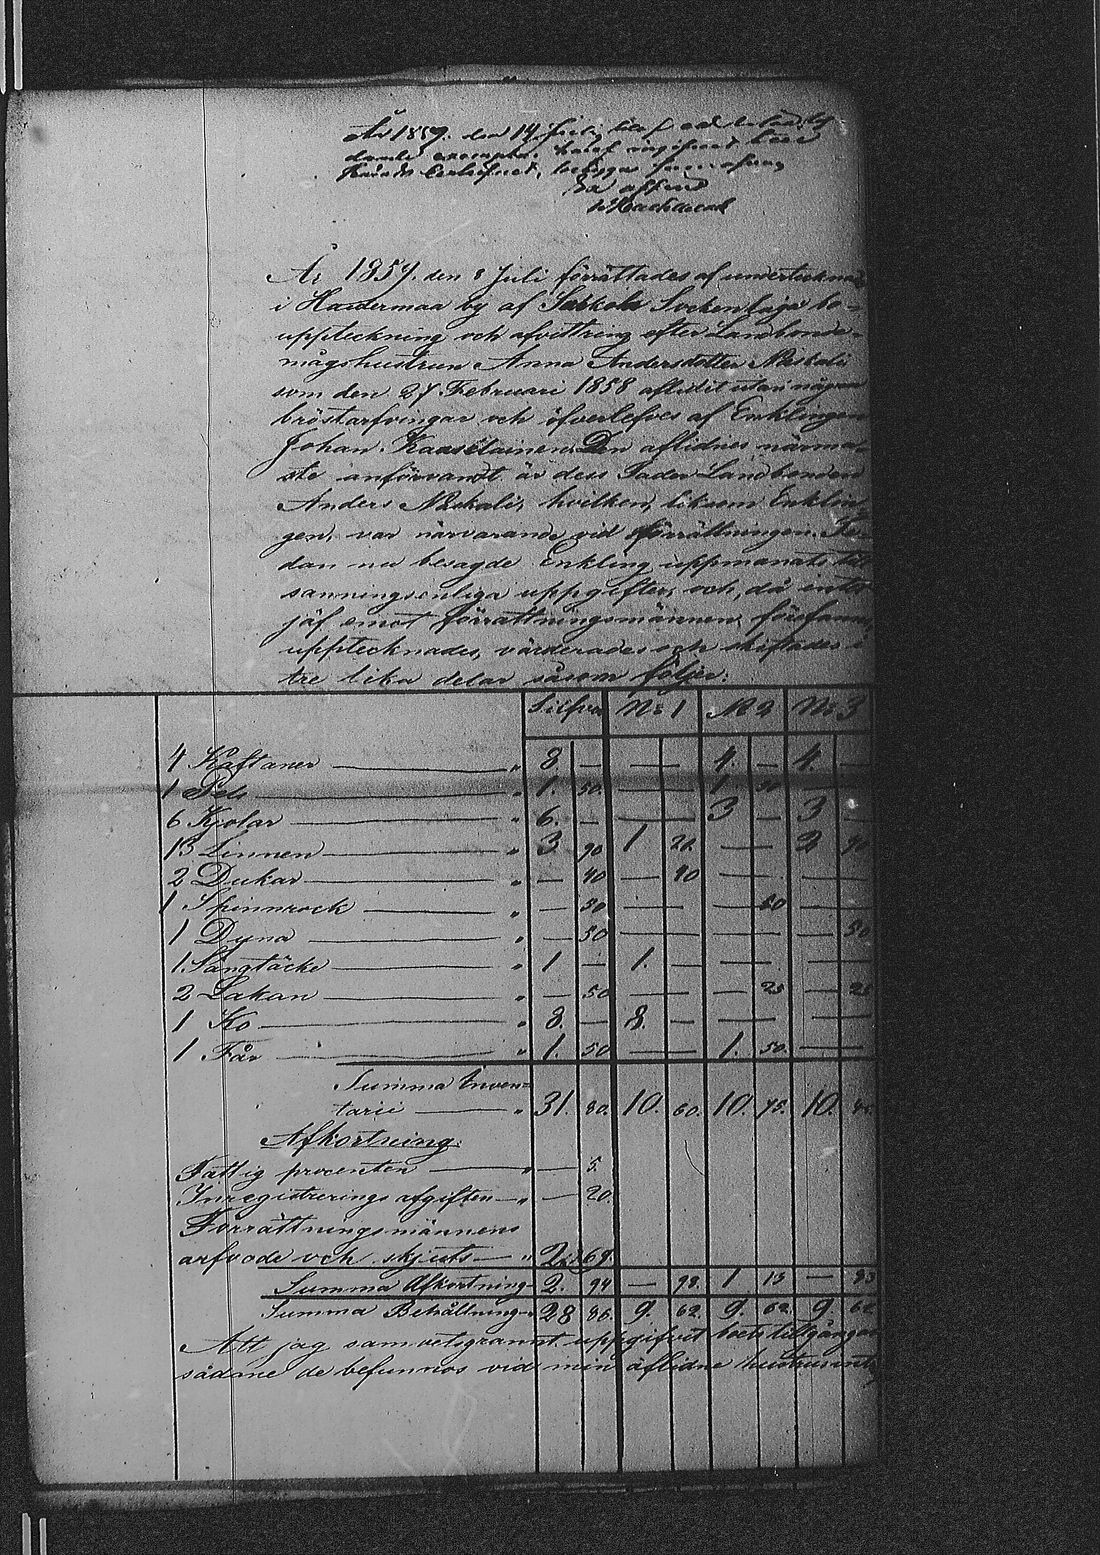 År 1859. den 14 Juli,
År 1859. den 8 Juli förrättades af undertecknad
i by af Sakkola Sockn laga bo-
uppteckning och afvittring efter Landbonde-
mågshustrun Anna Andersdotter Näskali
som den 27 Februari 1858 aflidit utan några
bröstarfvingar och öfverlefves af Enklingen
Johan Kaasalainen. Den aflidnes närma-
ste anförvandt är dess Fader Landbonden
Anders Näskali, hvilken, liksom Enklin-
gen, var närvarande vid förrättningen. Se-
dan nu besagde Enkling uppmanats till
sanningsenliga uppgifter, och, då intet
jäf emot förrättningsmännen förefanns,
upptecknades, värderades och skiftades i
tre lika delar såsom följer:
Silfver № 1 № 2 № 3
4 Kaftaner — " 8. — — — 4. — 4. —
1 Pels — " 1. 50. — — 1 50
6 Kjolar — " 6. — — — 3 — 3 —
13 Linnen — " 3 90 1 20. — 2 70
2 Dukar — " — 40 — 40 — —
1 Spinnrock — " — 50 — — 50 —
1 Dyna — " — 50 — — — 50
1. Sängtäcke — " 1 — 1. — — —
2 Lakan — " — 50 — — 25 — 25
1 Ko — " 8. — 8. — — —
1 Får — " 1. 50 — 1. 50. —
Summa Inven-
tarii — " 31. 80. 10. 60. 10. 75. 10. 45.
Afkortning.
Fattig procenten — " — 5.
Inregistrerings afgiften — " — 20.
Förrättningsmännens
arfvode och skjuts — " 2. 69.
Summa Afkortning 2. 94 — 98. 1 13 — 83
Summa Behållning 28 86. 9. 62. 9. 62. 9. 62
Att jag samvetsgrannt uppgifvit boets tillgångar
sådane de befunnos vid min aflidne hustrus